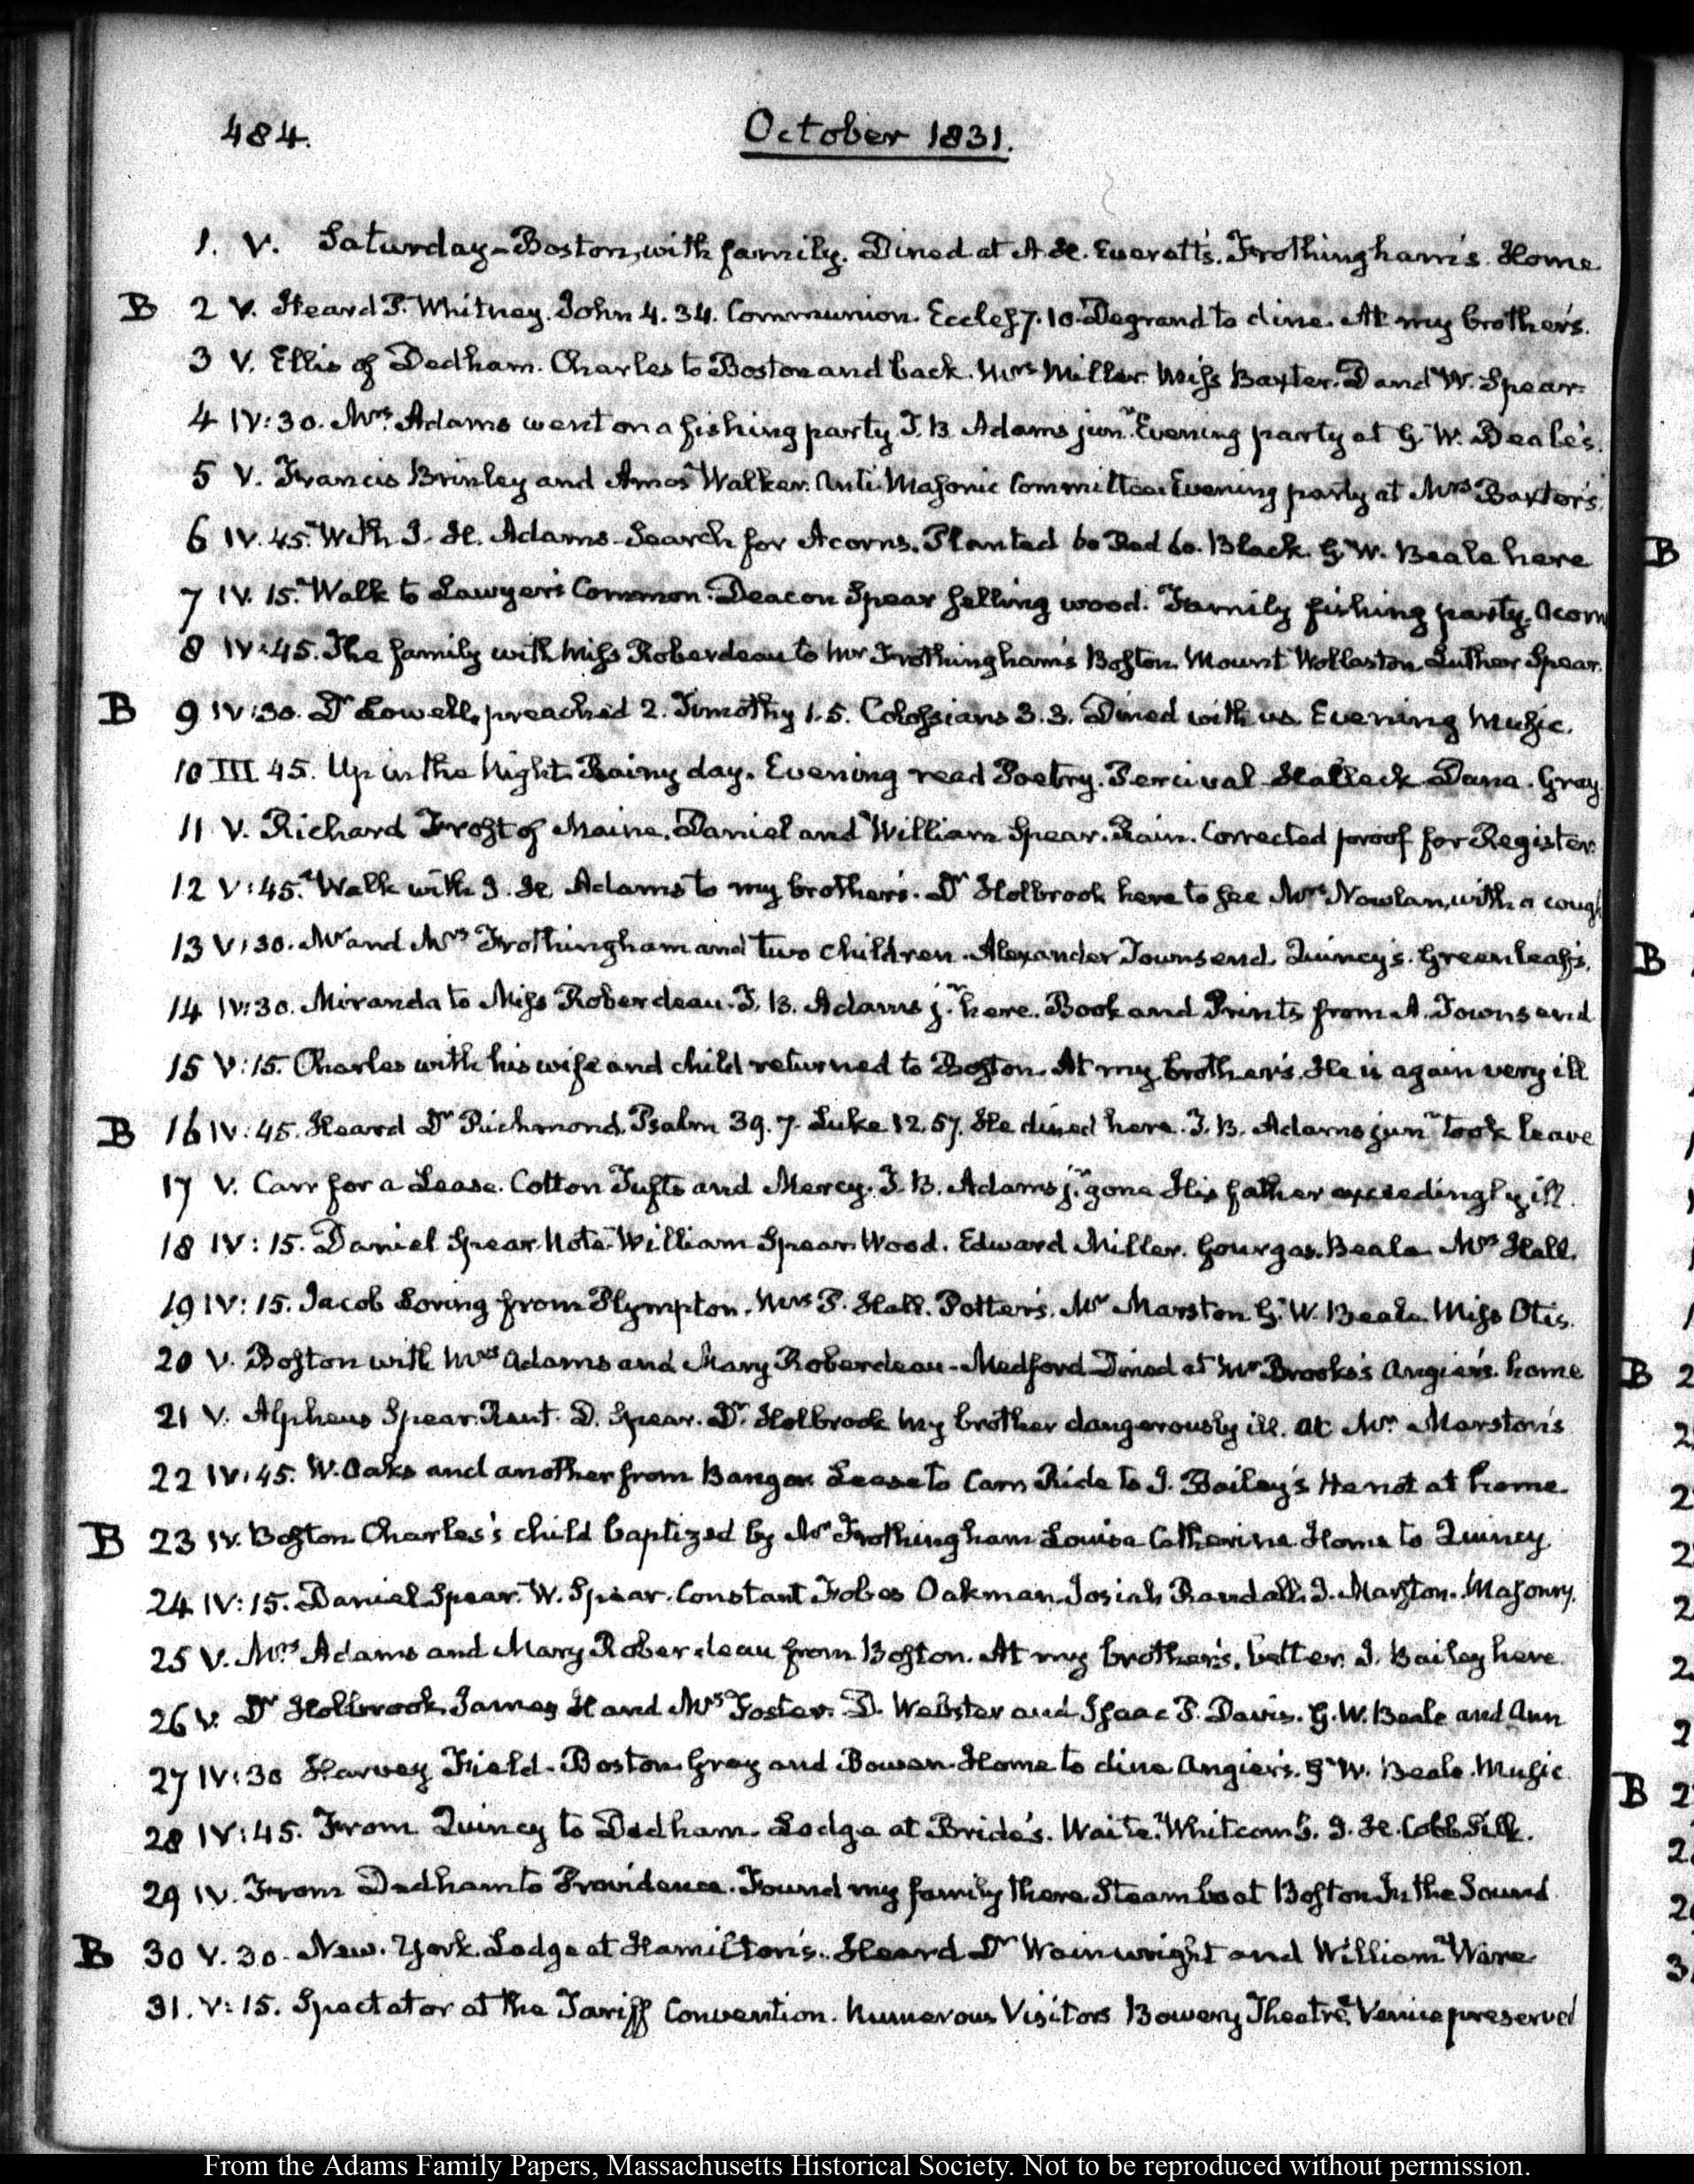 484.
October 1831.
1. V. Saturday - Boston, with family. Dined at A. H. Everett's. Frothingham's. Home
B 2 V. Heard P. Whitney. John 4. 34. Communion. Eccles 7. 10. Degrand to dine. At my brother's.
3 V. Ellis of Dedham. Charles to Boston and back. Mrs Miller. Miss Baxter. D and W. Spear.
4 IV:30. Mrs Adams went on a fishing party T. B. Adams junr. Evening party at G. W. Beale's.
5 V. Francis Brinley and Amasa Walker. Anti Masonic Committee. Evening party at Mrs Baxter's.
6 IV. 45. With I. H. Adams. Search for Acorns. Planted 60 Red 60. Black. G. W. Beale here
7 IV. 15. Walk to Lawyer's Common. Deacon Spear felling wood. Family fishing party. Acorn
8 IV:45. The family with Miss Roberdeau to Mr Frothingham's Boston. Mount Wollaston. Luther Spear.
B 9 IV:30. Dr Lowell, preached 2. Timothy 1. 5. Colossians 3. 3. Dined with us. Evening Music.
10 III 45. Up in the Night. Rainy day. Evening read Poetry. Percival. Halleck. Dana. Gray
11 V. Richard Frost of Maine. Daniel and William Spear. Rain. Corrected proof for Register
12 V:45. Walk with I. H. Adams to my brother's. Dr Holbrook here to see Mrs Nowlan, with a cough
13 V:30. Mr and Mrs Frothingham and two children. Alexander Townsend. Quincy's. Greenleaf's.
14 IV:30. Miranda to Miss Roberdeau. T. B. Adams jr. here. Book and Prints from A. Townsend
15 V:15. Charles with his wife and child returned to Boston. At my brother's. He is again very ill
B 16 IV:45. Heard Dr Richmond. Psalm 39. 7. Luke 12. 57. He dined here. T. B. Adams junr took leave
17 V. Carr for a Lease. Cotton Tufts and Mercy. T. B. Adams jr. gone His father exceedingly ill.
18 IV:15. Daniel Spear. Note. William Spear. Wood. Edward Miller. Gourgas. Beale. Mrs Hall.
19 IV:15. Jacob Loring from Plympton. Mrs P. Hall. Potter's. Mr Marston G. W. Beale Miss Otis.
20 V. Boston with Mrs Adams and Mary Roberdeau - Medford Dined at Mr Brooks's Angier's. home
21 V. Alpheus Spear. Rent. D. Spear. Dr. Holbrook My brother dangerously ill. At Mr. Marston's
22 IV:45. W. Oaks and another from Bangor. Lease to Carr. Ride to I. Bailey's He not at home.
B 23 IV. Boston Charles's child baptized by Mr Frothingham Louisa Catherine. Home to Quincy
24 IV:15. Daniel Spear. W. Spear. Constant Fobes Oakman. Josiah Randall. I. Marston. Masonry.
25 V. Mrs Adams and Mary Roberdeau from Boston. At my brother's. better. I. Bailey here.
26 V. Dr Holbrook. James H and Mrs Foster. D. Webster and Isaac P. Davis. G. W. Beale and Ann
27 IV:30 Harvey Field. Boston. Gray and Bowen. Home to dine Angier's. G. W. Beale. Music
28 IV:45. From Quincy to Dedham. Lodge at Bride's. Waite. Whitcomb. I. H. Cobb Silk.
29 IV. From Dedham to Providence. Found my family there. Steam boat Boston In the Sound
B 30 V. 30. New. York. Lodge at Hamilton's. Heard Dr Wainwright and William Ware
31. V:15. Spectator at the Tariff Convention. Numerous Visitors Bowery Theatre. Venice preserved
From the Adams Family Papers, Massachusetts Historical Society. Not to be reproduced without permission.